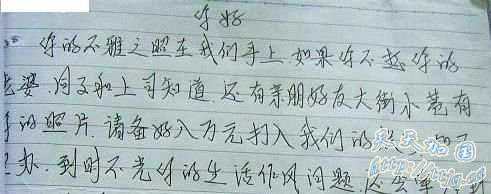 你好
你的不雅之照在我们手上.如果你不想你的
老婆.和上司知道.还有亲朋好友大街小巷有
你的照片.请备好八万元打入我们的
办.到时不光你的生活作风问题.